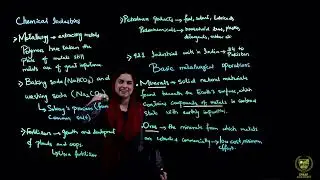 Chemical Industries
→ Metallurgy → extracting metals
Polymers have taken the
place of metals still
metals are of great importance.
→ Baking soda (NaHCO3) and
washing soda (Na2CO3)
→ Solvay's process (from
Common salt)
→ Fertilizers → Growth and development
of plants and crops
↳ Urea fertilizer
→ Petroleum products → fuel, solvent, lubricants
Petrochemicals → household items, plastics,
detergents, rubber etc
→ 423 Industrial units in India → 34 to
Pakistan
Basic metallurgical operations
Minerals → Solid natural materials
found beneath the Earth's surface, which
contains compounds of metals in combined
state with earthly impurities.
Ores → the minerals from which metals
are extracted commercially → low cost, minimum
effort.